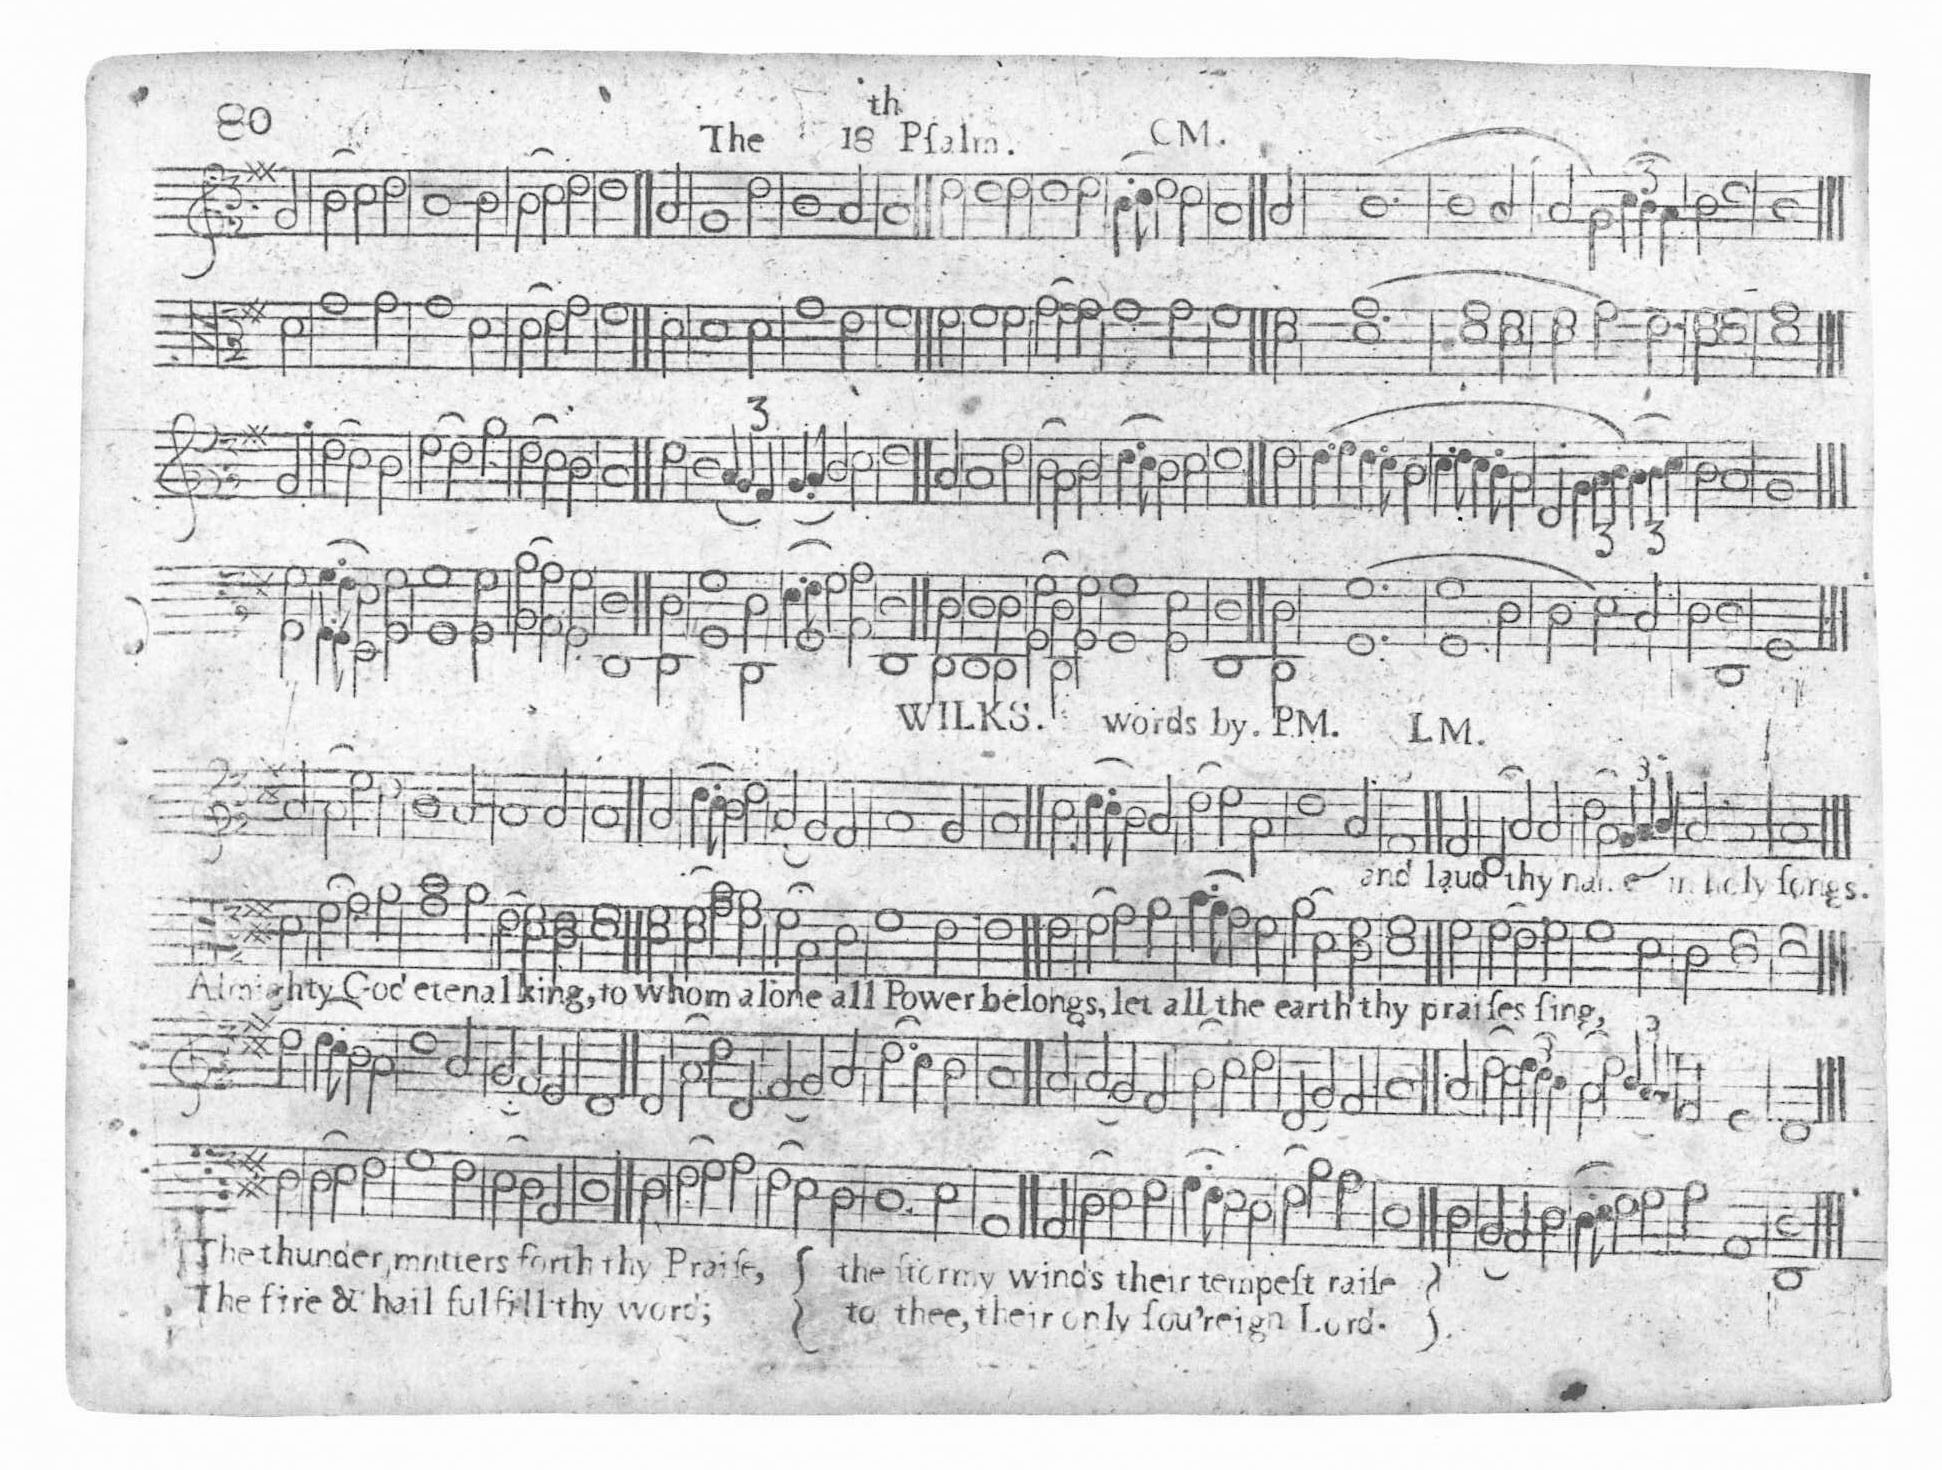 80
The 18th Pſalm. CM.
3
3
3 3
WILKS. words by. PM. LM.
3
and laud thy name in holy ſongs.
Almighty God etenal king, to whom alone all Power belongs, let all the earth thy praiſes ſing,
3
3
The thunder, mntters forth thy Praiſe, { the ſtormy winds their tempeſt raiſe }
The fire & hail fulfill thy word; to thee, their only ſou'reign Lord.